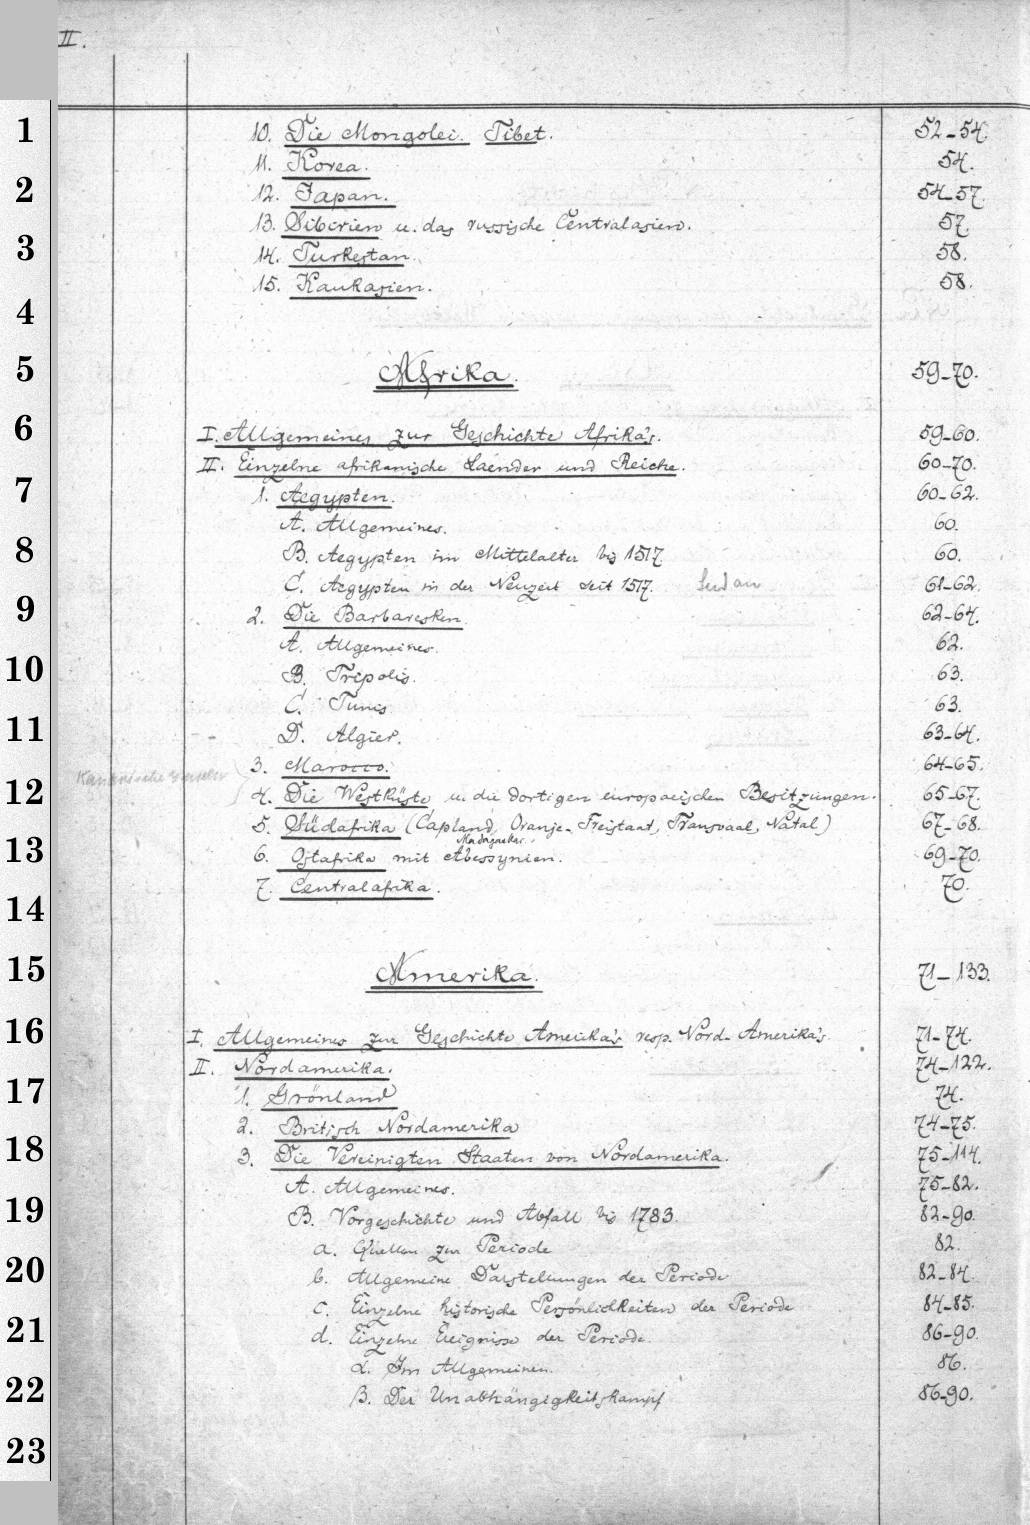 II.
10. Die Mongolei. Tibet. 52-54.
1
11. Korea. 54.
2
12. Japan. 54-57.
13. Sibirien u. das russische Centralasien. 57.
3
14. Turkestan. 58.
15. Kaukasien. 58.
4
5
Afrika. 59-70.
6
I. Allgemeines zur Geschichte Afrika's. 59-60.
II. Einzelne afrikanische Laender und Reiche. 60-70.
7
1. Aegypten. 60-62.
A. Allgemeines. 60.
8
B. Aegypten im Mittelalter bis 1517. 60.
C. Aegypten in der Neuzeit seit 1517. Sudan 61-62.
9
2. Die Barbaresken. 62-64.
A. Allgemeines. 62.
10
B. Tripolis. 63.
C. Tunis 63.
11
D. Algier. 63-64.
3. Marocco. 64-65.
Kanarische Inseln
12
4. Die Westküste u. die dortigen europaeischen Besitzungen. 65-67.
5. Südafrika (Capland, Oranje-Freistaat, Transvaal, Natal) 67-68.
13
Madagaskar.
6. Ostafrika mit Abessynien. 69-70.
7. Centralafrika. 70.
14
15
Amerika. 71-133.
16
I. Allgemeines zur Geschichte Amerika's resp. Nord-Amerika's. 71-74.
II. Nordamerika. 74-122.
17
1. Grönland 74.
2. Britisch Nordamerika 74-75.
18
3. Die Vereinigten Staaten von Nordamerika. 75-114.
A. Allgemeines. 75-82.
19
B. Vorgeschichte und Abfall bis 1783. 82-90.
a. Quellen zur Periode 82.
20
b. Allgemeine Darstellungen der Periode 82-84.
c. Einzelne historische Persönlichkeiten der Periode 84-85.
21
d. Einzelne Ereignisse der Periode. 86-90.
α. Im Allgemeinen. 86.
22
β. Der Unabhängigkeitskampf 86-90.
23